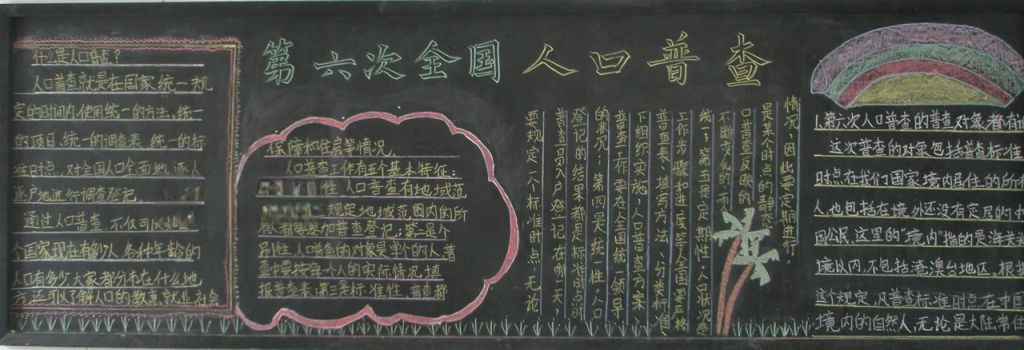 第六次全国人口普查
什么是人口普查？
人口普查就是在国家统一规
定的时间内，使用统一的方法、统一
的项目、统一的调查表、统一的标
准时点，对全国人口全面地、逐人
逐户地进行调查登记。
通过人口普查，不仅可
个国家现在有多少人，各种年龄的
人口有多少，大家都分布在什么地
方，还可以了解人口的教育、就业、社会
保障和住房等情况。
人口普查工作有五个基本特征：
性，人口普查有地域范
规定地域范围内的所
有人都要参加普查登记；第二是个
别性，人口普查的对象是单个的人，普
查中要按每个人的实际情况填
报普查表；第三是标准性，普查都
要规定一个标准时点，无论
普查员入户登记在哪一天，
登记的结果都是标准时点的
情况；第四是统一性，人口
普查工作需在全国统一领导
下组织实施，人口普查方案、
普查表、填写方法、分类标准、
工作步骤和进度等全国要严格
统一；第五是定期性，人口状况是
不断变化的，人口普查反映的
是某个时点的静态
情况，因此要定期进行。
1.第六次人口普查的普查对象都有
这次普查的对象包括普查标准
时点在我们国家境内居住的所有
人，也包括在境外还没有定居的中
国公民，这里的“境内”指的是海关
境以内，不包括港澳台地区，根据
这个规定，凡普查标准时点在中国
境内的自然人，无论是大陆常住